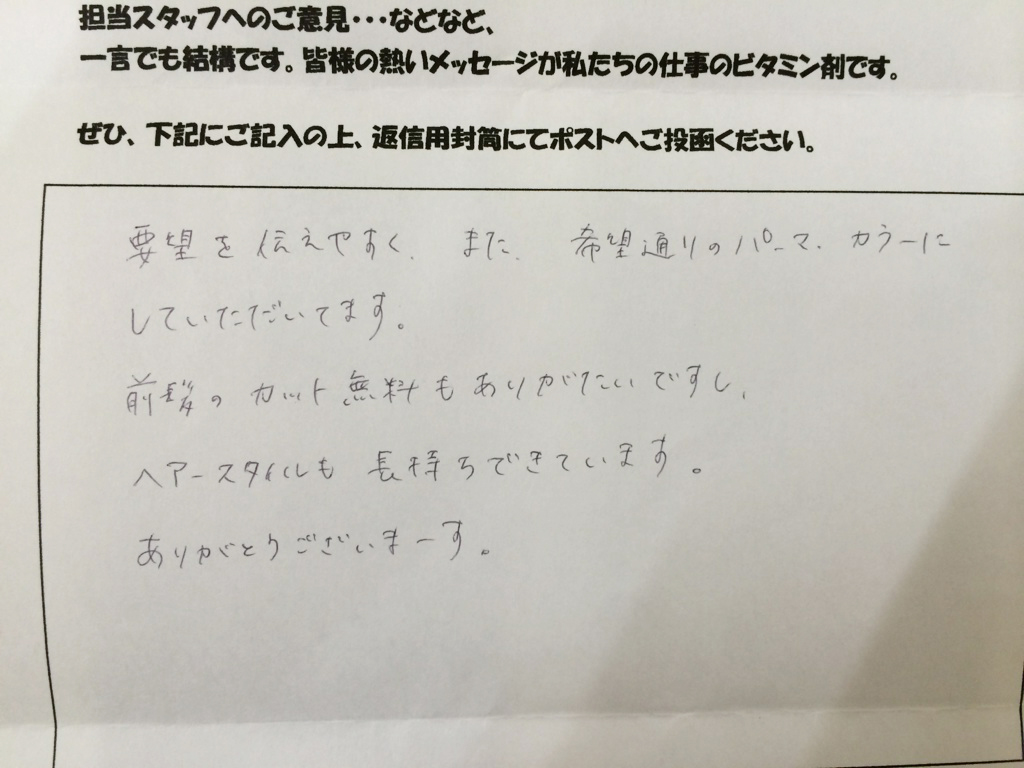 担当スタッフへのご意見・・・などなど、
一言でも結構です。皆様の熱いメッセージが私たちの仕事のビタミン剤です。
ぜひ、下記にご記入の上、返信用封筒にてポストへご投函ください。
要望を伝えやすく、また、希望通りのパーマ、カラーに
していただいてます。
前髪のカット無料もありがたいですし、
ヘアースタイルも長持ちできています。
ありがとうございまーす。